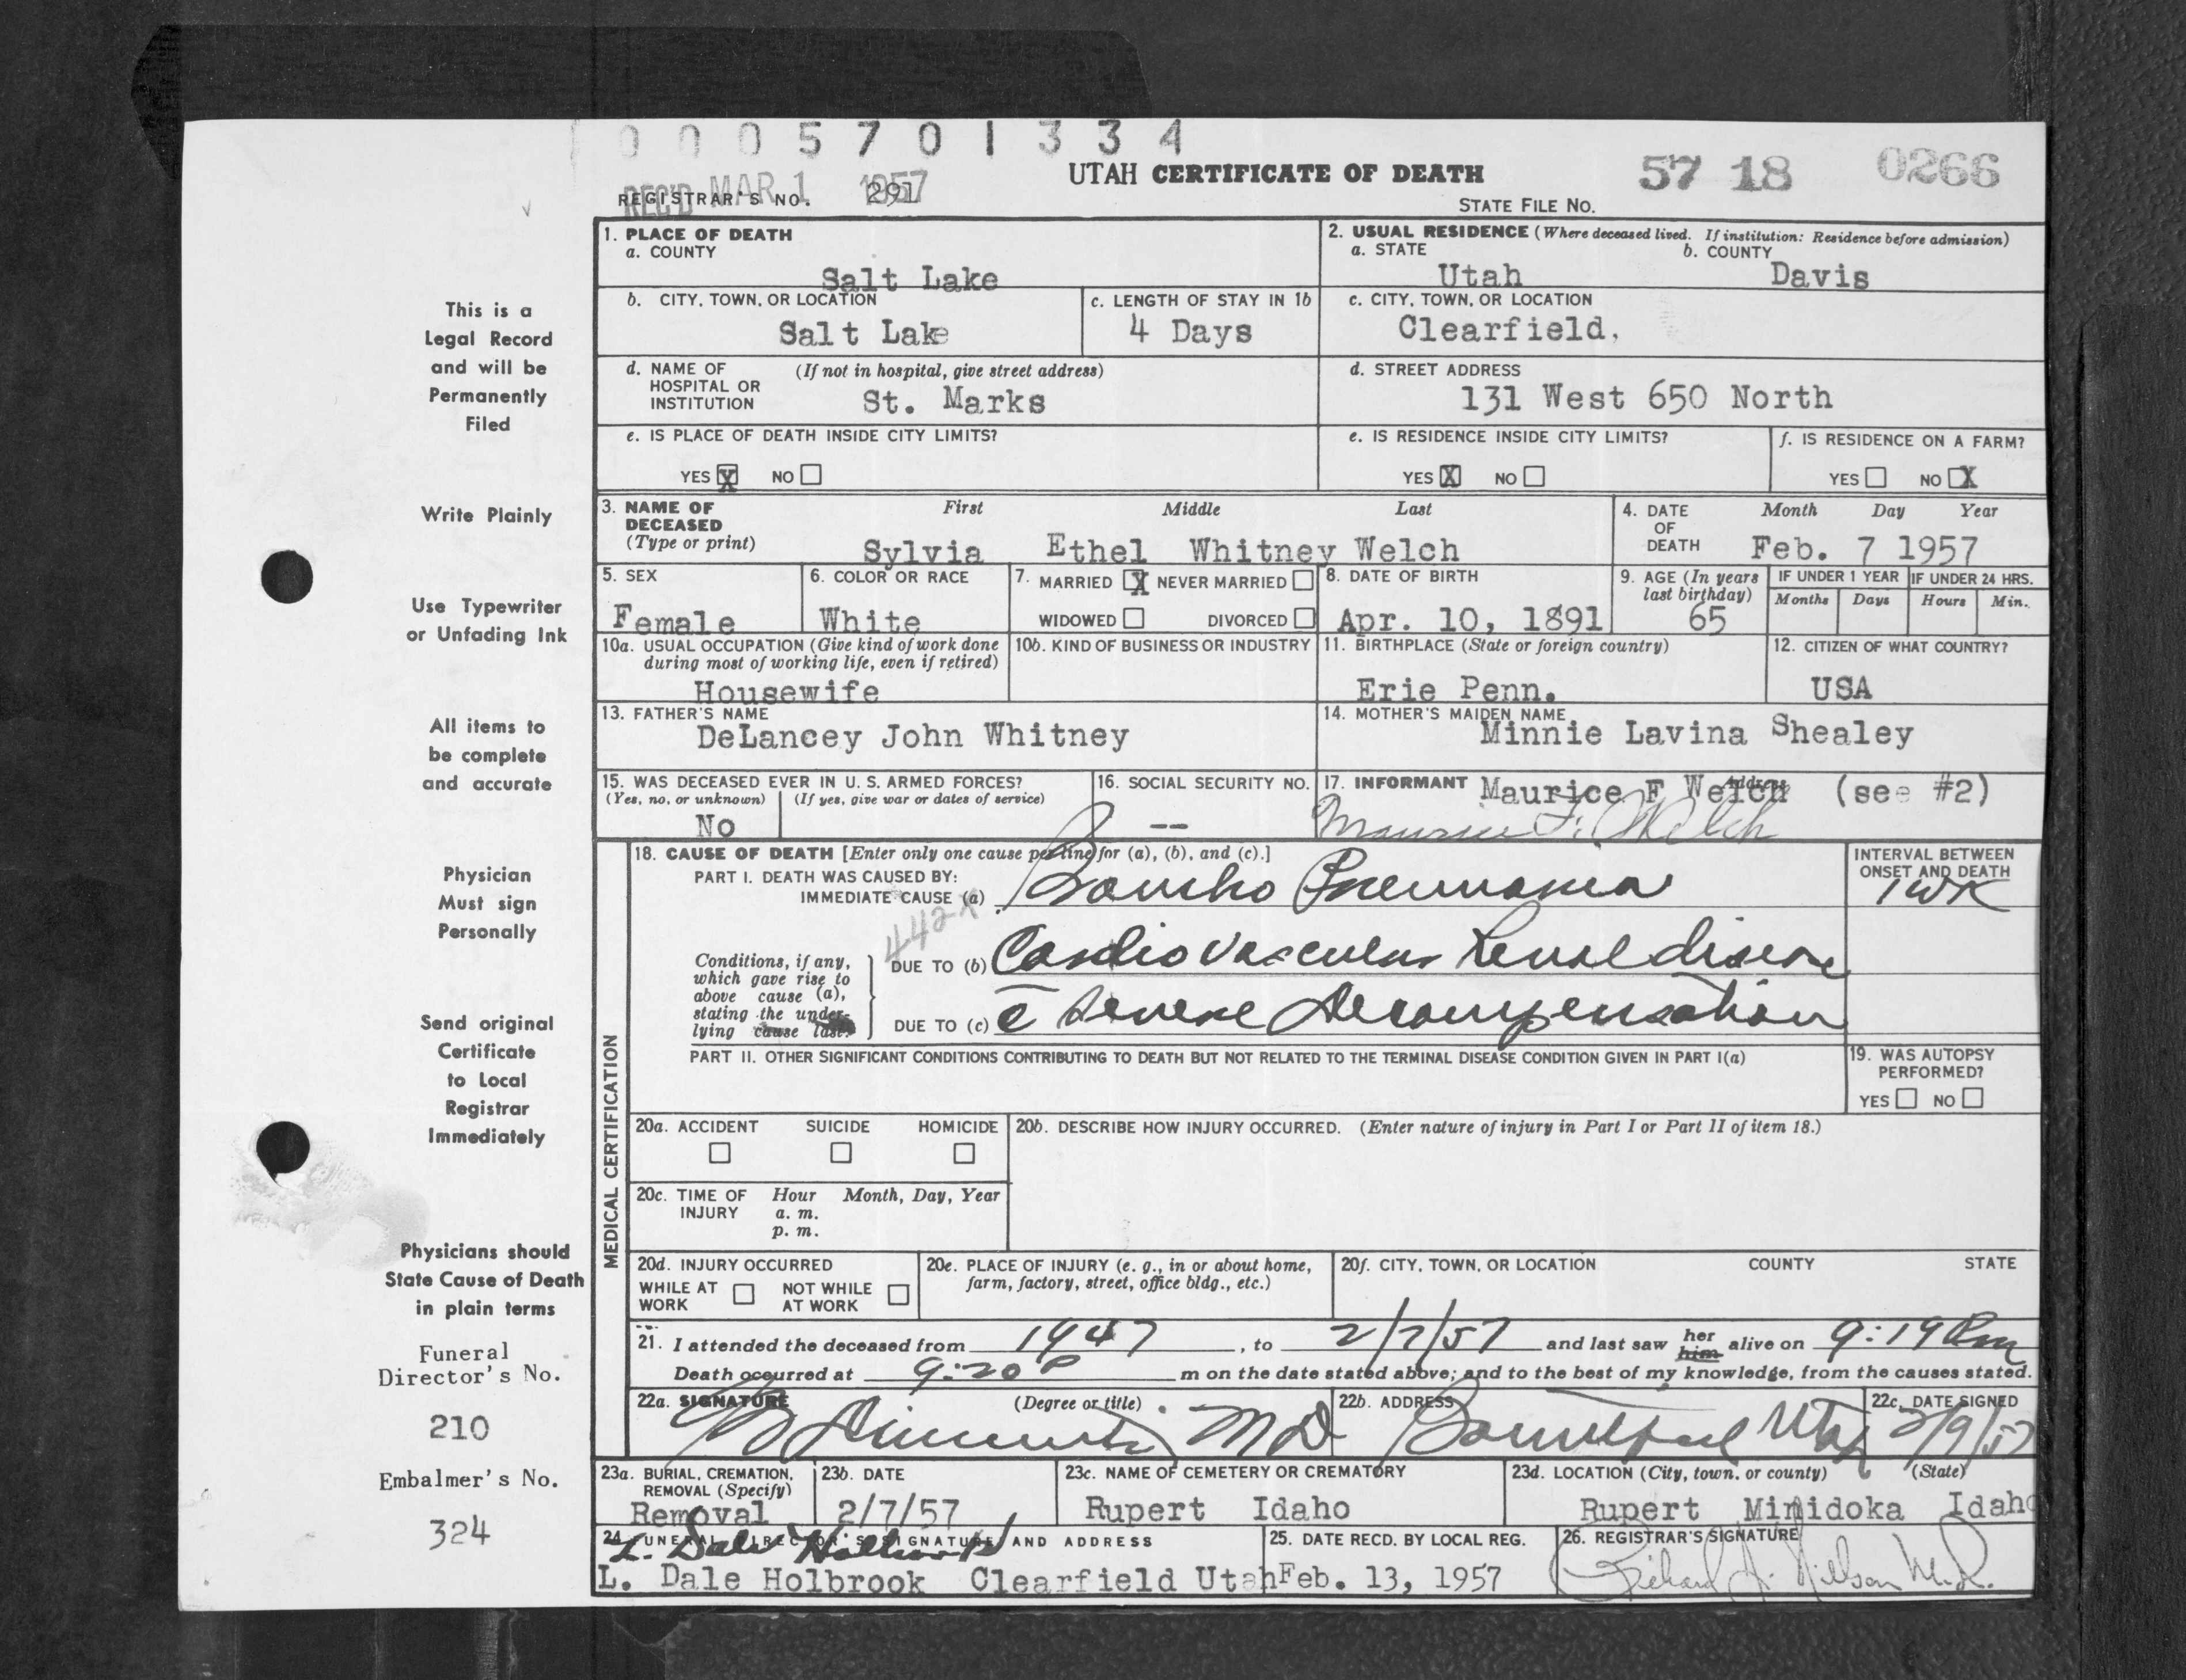 0 0 0 5 7 0 1 3 3 4
UTAH CERTIFICATE OF DEATH
57 18 0266
REC'D MAR 1 1957
REGISTRAR'S NO. 291
STATE FILE NO.
This is a
Legal Record
and will be
Permanently
Filed
Write Plainly
Use Typewriter
or Unfading Ink
All items to
be complete
and accurate
Physician
Must sign
Personally
Send original
Certificate
to Local
Registrar
Immediately
Physicians should
State Cause of Death
in plain terms
Funeral
Director's No.
210
Embalmer's No.
324
1. PLACE OF DEATH
a. COUNTY
Salt Lake
2. USUAL RESIDENCE (Where deceased lived. If institution: Residence before admission)
a. STATE b. COUNTY
Utah Davis
b. CITY, TOWN, OR LOCATION
Salt Lake
c. LENGTH OF STAY IN 1b
4 Days
c. CITY, TOWN, OR LOCATION
Clearfield,
d. NAME OF HOSPITAL OR INSTITUTION (If not in hospital, give street address)
St. Marks
d. STREET ADDRESS
131 West 650 North
e. IS PLACE OF DEATH INSIDE CITY LIMITS?
YES X NO
e. IS RESIDENCE INSIDE CITY LIMITS?
YES X NO
f. IS RESIDENCE ON A FARM?
YES NO X
3. NAME OF DECEASED (Type or print)
First Middle Last
Sylvia Ethel Whitney Welch
4. DATE OF DEATH
Month Day Year
Feb. 7 1957
5. SEX
Female
6. COLOR OR RACE
White
7. MARRIED X NEVER MARRIED
WIDOWED DIVORCED
8. DATE OF BIRTH
Apr. 10, 1891
9. AGE (In years last birthday)
65
IF UNDER 1 YEAR IF UNDER 24 HRS.
Months Days Hours Min.
10a. USUAL OCCUPATION (Give kind of work done during most of working life, even if retired)
Housewife
10b. KIND OF BUSINESS OR INDUSTRY
11. BIRTHPLACE (State or foreign country)
Erie Penn.
12. CITIZEN OF WHAT COUNTRY?
USA
13. FATHER'S NAME
DeLancey John Whitney
14. MOTHER'S MAIDEN NAME
Minnie Lavina Shealey
15. WAS DECEASED EVER IN U. S. ARMED FORCES?
(Yes, no, or unknown) (If yes, give war or dates of service)
No
16. SOCIAL SECURITY NO.
--
17. INFORMANT Address
Maurice F Welch (see #2)
Maurice F. Welch
MEDICAL CERTIFICATION
18. CAUSE OF DEATH [Enter only one cause per line for (a), (b), and (c).]
PART I. DEATH WAS CAUSED BY:
IMMEDIATE CAUSE (a) Broncho Pneumonia
INTERVAL BETWEEN ONSET AND DEATH
1 WK
442X
Conditions, if any, which gave rise to above cause (a), stating the underlying cause last.
DUE TO (b) Cardio Vascular Renal disease
DUE TO (c) c̄ Severe Decompensation
PART II. OTHER SIGNIFICANT CONDITIONS CONTRIBUTING TO DEATH BUT NOT RELATED TO THE TERMINAL DISEASE CONDITION GIVEN IN PART I(a)
19. WAS AUTOPSY PERFORMED?
YES NO
20a. ACCIDENT SUICIDE HOMICIDE
20b. DESCRIBE HOW INJURY OCCURRED. (Enter nature of injury in Part I or Part II of item 18.)
20c. TIME OF INJURY Hour Month, Day, Year
a. m.
p. m.
20d. INJURY OCCURRED
WHILE AT WORK NOT WHILE AT WORK
20e. PLACE OF INJURY (e. g., in or about home, farm, factory, street, office bldg., etc.)
20f. CITY, TOWN, OR LOCATION COUNTY STATE
21. I attended the deceased from 1947, to 2/7/57 and last saw her him alive on 9:19 Pm
Death occurred at 9:20 P m on the date stated above; and to the best of my knowledge, from the causes stated.
22a. SIGNATURE (Degree or title)
MD
22b. ADDRESS
Bountiful Utah
22c. DATE SIGNED
2/9/57
23a. BURIAL, CREMATION, REMOVAL (Specify)
Removal
23b. DATE
2/7/57
23c. NAME OF CEMETERY OR CREMATORY
Rupert Idaho
23d. LOCATION (City, town, or county) (State)
Rupert Minidoka Idaho
24. FUNERAL DIRECTOR'S SIGNATURE AND ADDRESS
L. Dale Holbrook
L. Dale Holbrook Clearfield Utah
25. DATE RECD. BY LOCAL REG.
Feb. 13, 1957
26. REGISTRAR'S SIGNATURE
Richard A. Nilson M.D.